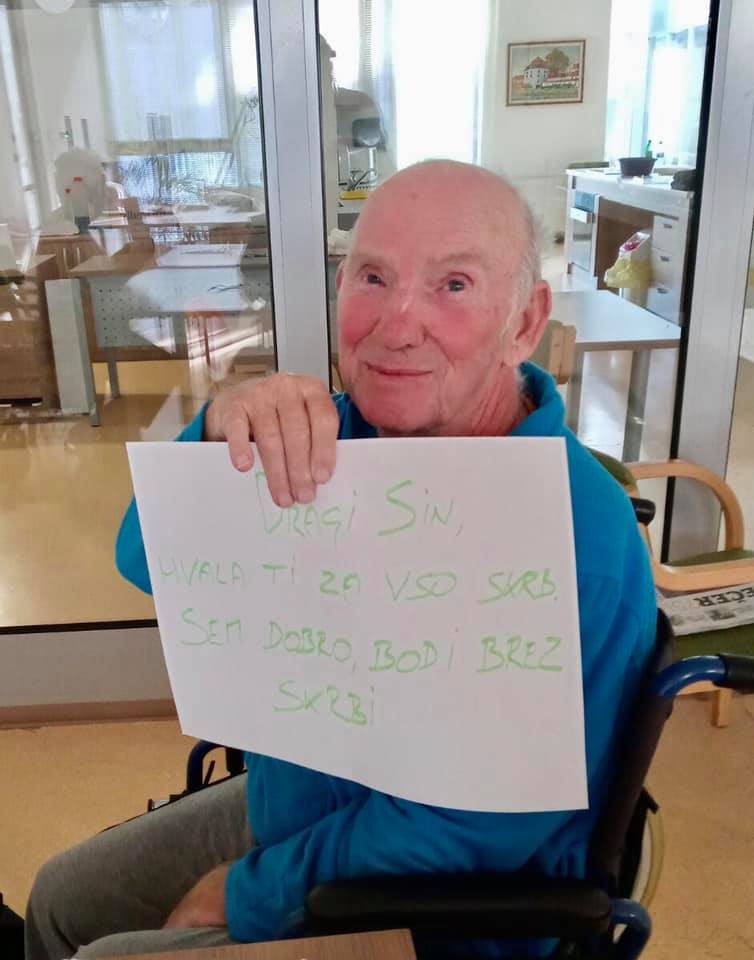 DRAGI SIN,
HVALA TI ZA VSO SKRB.
SEM DOBRO, BODI BREZ
SKRBI
VECER